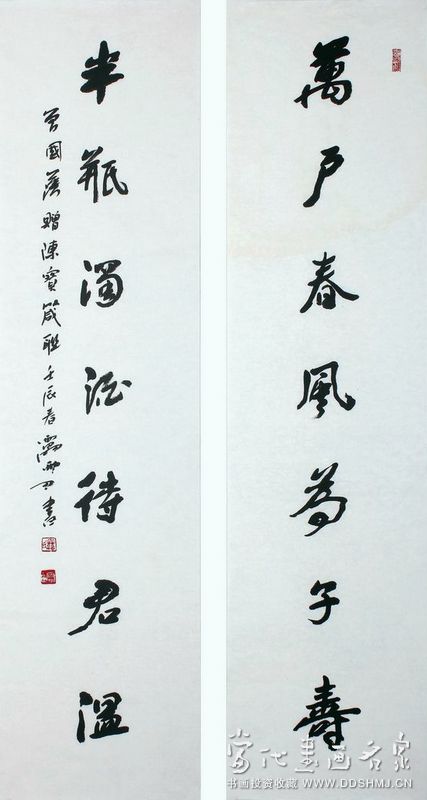 萬戶春風為子壽
半瓶濁酒待君溫
曾國藩贈陳寶箴聯壬辰春
書
當代書畫名家
书画投资收藏 WWW.DDSHMJ.CN